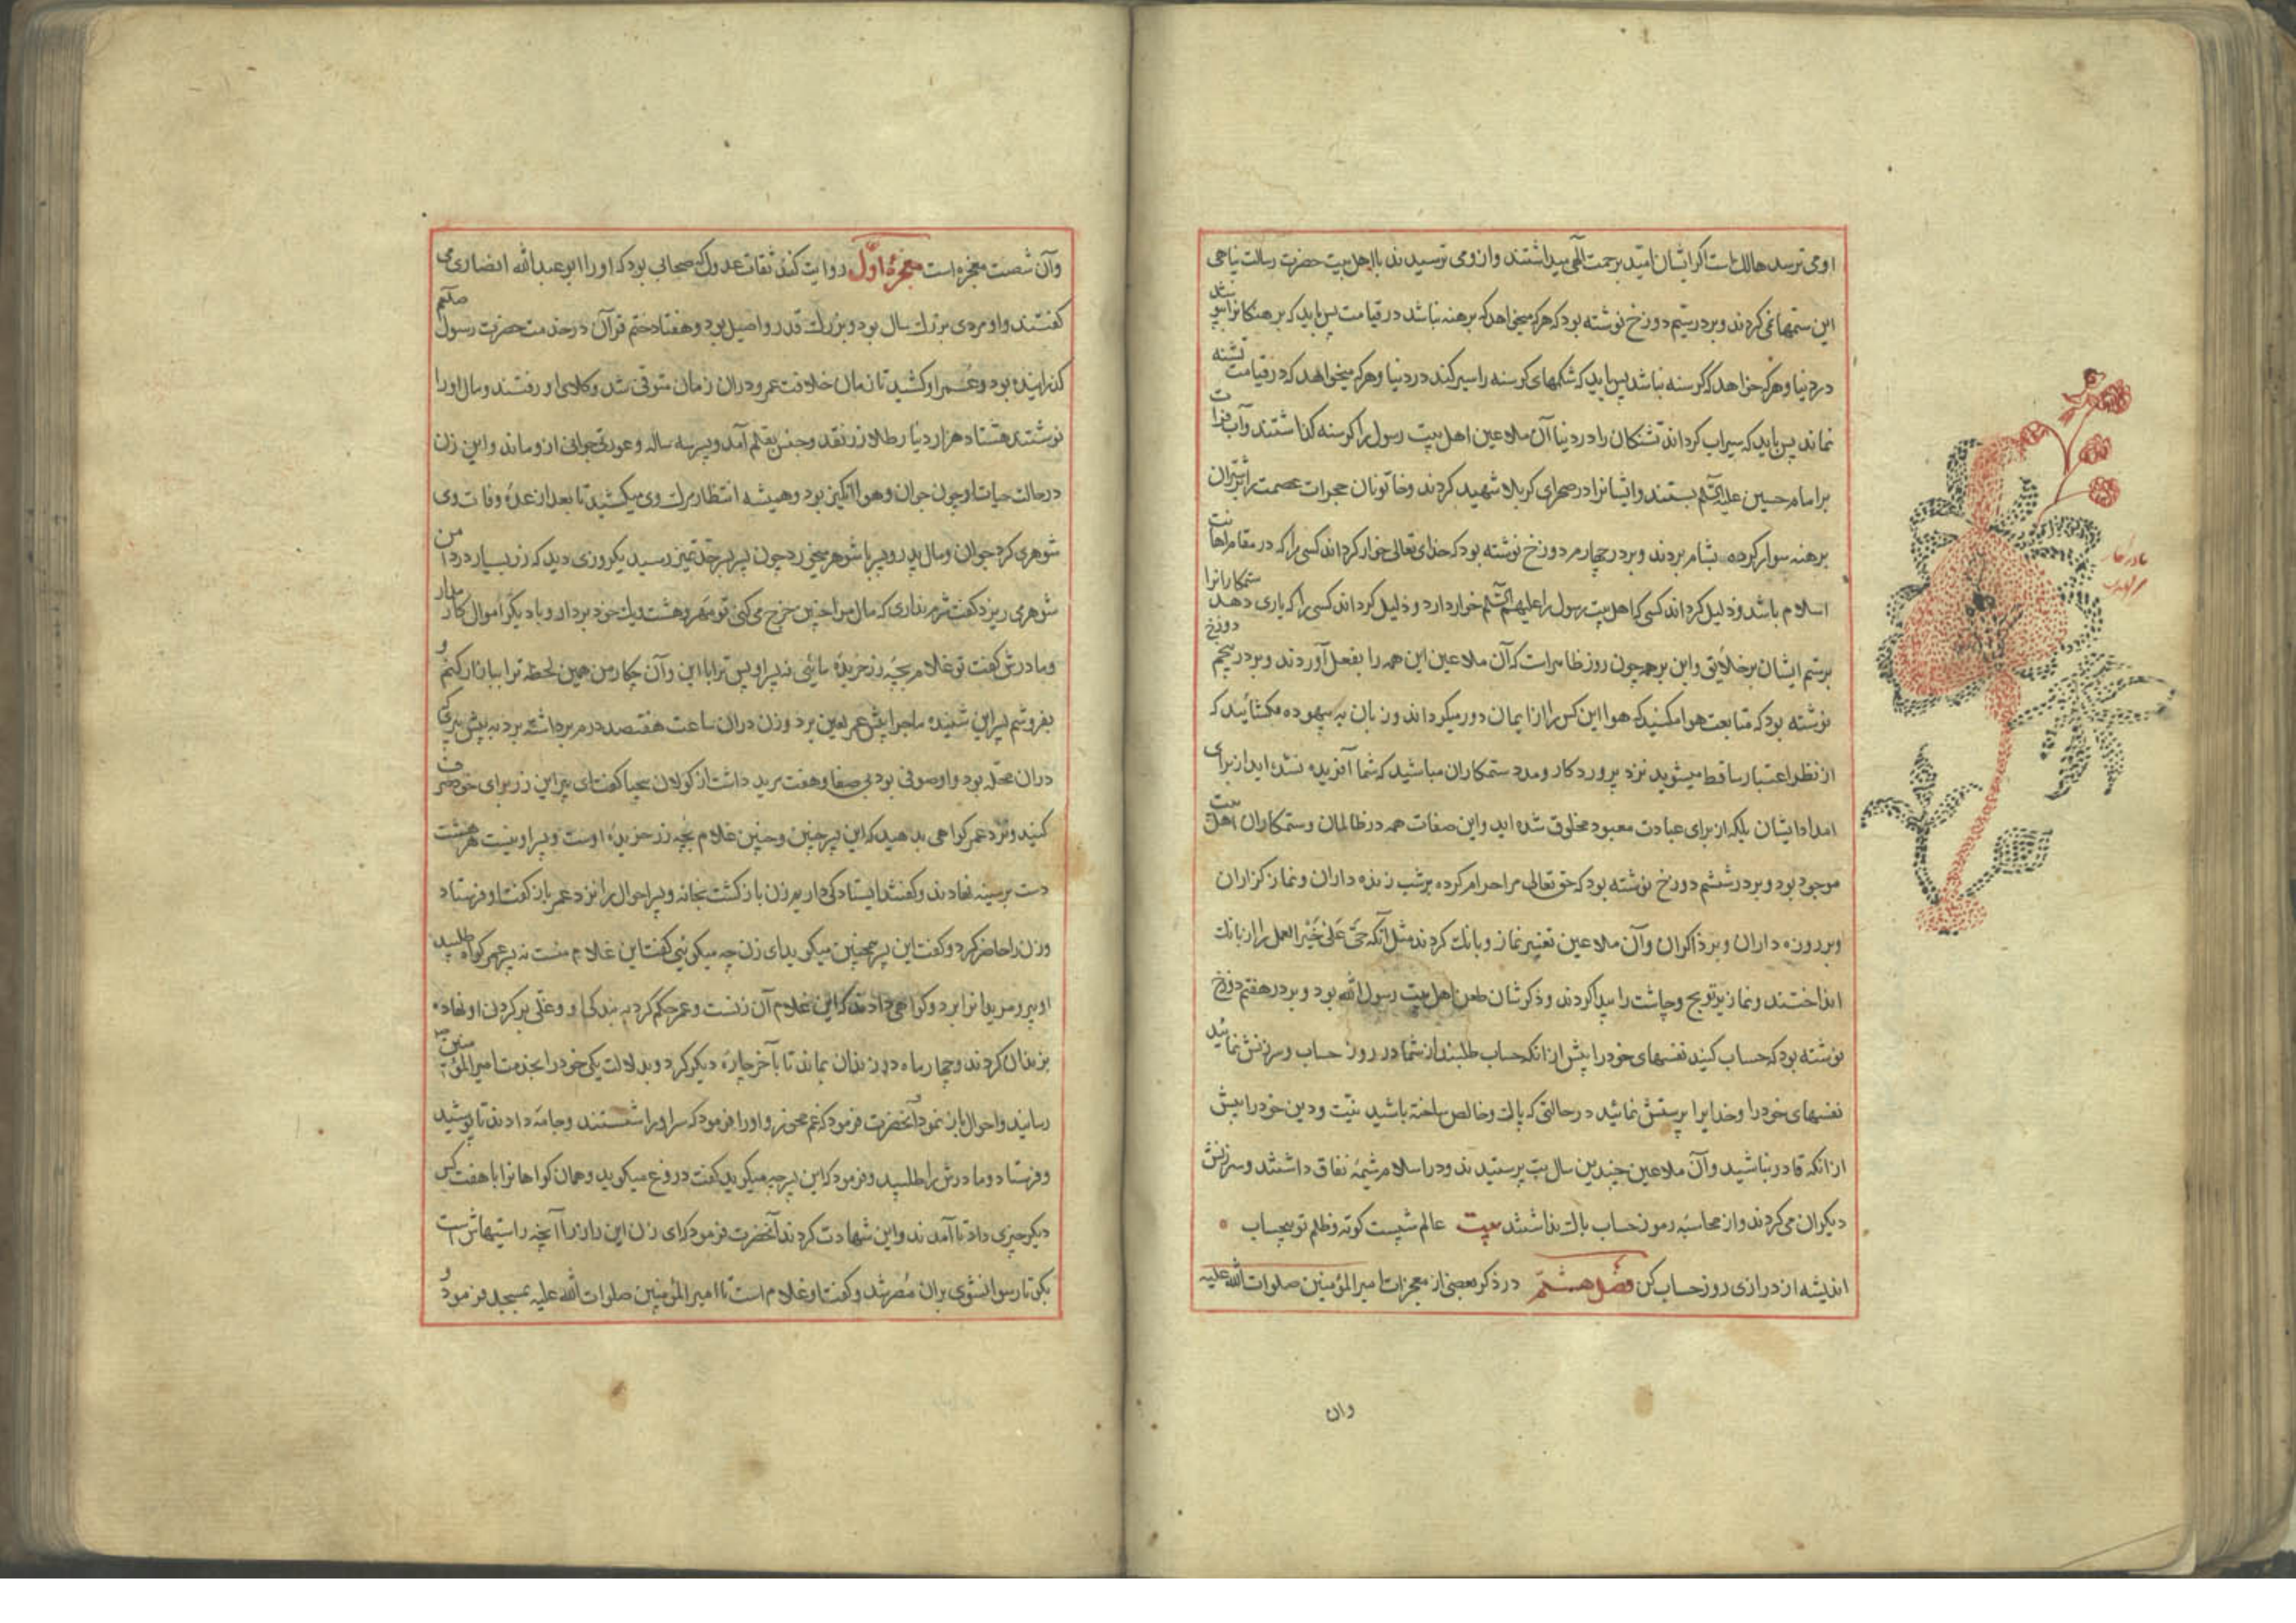 او می ترسد هالك است اکر ایشان امید برحمت الهی میداشتند و از وی ترسیدند با اهل بیت حضرت رسالت پناهی
این ستمها نمی کردند و بر در سیم دوزخ نوشته بود که هرکه میخواهد که برهنه نباشد در قیامت پس باید که برهنکانرا بپوشاند
در دنیا و هرکه خواهد که کرسنه نباشد پس باید که شکمهای کرسنه را سیر کند در دنیا و هرکه میخواهد که در قیامت تشنه
نماند پس باید که سیراب کرداند تشنکان را در دنیا آن ملاعین اهل بیت رسول را کرسنه کذاشتند و آب فرات
بر امام حسین علیه السلم بستند و ایشانرا در صحرای کربلا شهید کردند و خاتونان حجرات عصمت را بر شتران
برهنه سوار کرده بشام بردند و بر در چهارم دوزخ نوشته بود که خدای تعالی خوار کرداند کسی را که در مقام اهانت
اسلام باشد و ذلیل کرداند کسی که اهل بیت رسول را علیهم السلم خوار دارد و ذلیل کرداند کسی را که یاری دهد ستمکارانرا
بر ستم ایشان بر خلایق و این بر همه چون روز ظاهر است که آن ملاعین این همه را بفعل آوردند و بر در پنجم دوزخ
نوشته بود که متابعت هوا مکنید که هوا این کس را از ایمان دور میکرداند و زبان به بیهوده مکشائید که
از نظر اعتبار ساقط میشوید نزد پروردکار و مدد ستمکاران مباشید که شما آفریده نشده اید از برای
امداد ایشان بلکه از برای عبادت معبود مخلوق شده اید و این صفات همه در ظالمان و ستمکاران اهل بیت
موجود بود و بر در ششم دوزخ نوشته بود که حق تعالی مرا حرام کرده بر شب زنده داران و نماز کزاران
و بر روزه داران و بر ذاکران و آن ملاعین تغییر نماز و بانك کردند مثل آنکه حی علی خیر العمل را از بانك
انداختند و نماز تراویح و چاشت را پیدا کردند و ذکرشان طعن اهل بیت رسول الله بود و بر در هفتم دوزخ
نوشته بود که حساب کنید نفسهای خود را پیش از انکه حساب طلبند از شما در روز حساب و سرزنش نمائید
نفسهای خود را و خدایرا پرستش نمائید در حالتی که پاك و خالص ساخته باشید نیت و دین خود را پیش
از انکه قادر نباشید و آن ملاعین چندین سال بت پرستیدند و در اسلام شیمهٔ نفاق داشتند و سرزنش
دیکران می کردند و از محاسبه روز حساب باك نداشتند بیت عالم شبیست کوته و ظلم تو بیحساب
اندیشه از درازی روز حساب کن فصل هشتم در ذکر بعضی از معجزات امیر المؤمنین صلوات الله علیه
وان
وآن شصت معجزه است معجزهٔ اول روایت کنند ثقات عدول که صحابی بود که او را ابو عبدالله انصاری می
کفتند و او مردی بزرك سال بود و بزرك قدر و اصیل بود و هفتاد ختم قرآن در خدمت حضرت رسول صلعم
کذرانیده بود و عمر او کشید تا زمان خلافت عمر و دران زمان متوفی شد وکلای او رفتند و مال او را
نوشتند هشتاد هزار دینار طلا از نقد و جنس بقلم آمد و پسر سه ساله و عورتی جوانی ازو ماند و این زن
در حالت حیات او چون جوان و هوا انکیز بود و همیشه انتظار مرك وی میکشید تا بعد از عدهٔ وفات وی
شوهری کرد جوان و مال پدر و پسر با شوهر میخورد چون پسر بحد تمیز رسید یکروزی دید که زر بسیار در دامن
شوهر می ریزد کفت شرم نداری که مال مرا چنین خرج می کنی تو مهر و هشت یك خود بردار و با دیکر اموال کار مدار
و مادرش کفت تو غلام بچه زر خریدهٔ مائی نه پسر او پس ترا با این و آن چکار من همین لحظه ترا ببازار کنم و
بفروشم پسر این شنیده ماجرا پیش عمر لعین برد و زن دران ساعت هفتصد درم برداشته برد به پیش پیری که
دران محله بود و او صوفی بود بی صفا و هفت مرید داشت از کولان بیحیا کفت ای پیر این زر برای خود صرف
کنید و نزد عمر کواهی بدهید که این پسر چنین و چنین غلام بچه زر خریدهٔ اوست و پسر او نیست هر هشت
دست بر سینه نهادند و کفتند ایستادکی داریم زن باز کشت بخانه و پسر احوال را نزد عمر باز کفت او فرستاد
و زن را حاضر کرد و کفت این پسر همچنین میکوید ای زن چه میکوئی کفت این غلام منست نه پسر عمر کواه طلبید
او پیر و مریدانرا برد و کواهی دادند که این غلام آن زنست و عمر حکم کرد به بندکی او و غلی بر کردن او نهاده
بزندان کردند و چهار ماه در زندان بماند تا بآخر چارهٔ دیکر کرد و بدلالت یکی خود را بخدمت امیر المؤمنین
رسانید و احوال باز نمود آنحضرت فرمود که غم مخور و او را فرمود که سر او را شستند و جامه دادند تا پوشید
و فرستاد و مادرش را طلبید و فرمود که این پسر چه میکوید کفت دروغ میکوید و همان کواهانرا با هفت کس
دیکر چیزی داد تا آمدند و این شهادت کردند آنحضرت فرمود که ای زن این راز را آنچه راستیهاش است
بکو تا رسوا نشوی بران مصر شد و کفت او غلام است تا امیر المؤمنین صلوات الله علیه بمسجد فرمود و